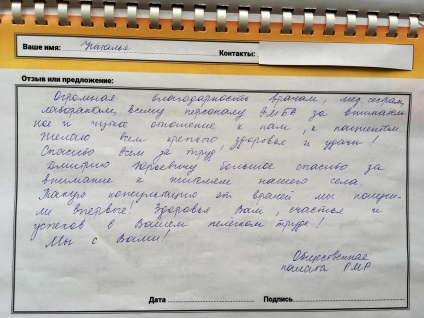 Ваше имя: Наталья Контакты:
Отзыв или предложение:
Огромная благодарность врачам, мед.сестрам,
лаборантам, всему персоналу ЭМБА за вниматель
ное и чуткое отношение к нам, к пациентам.
Желаю всем крепкого здоровья и удачи!
Спасибо всем за труд!
Дмитрию Юрьевичу большое спасибо за
внимание к жителям нашего села.
Такую консультацию от врачей мы получи-
ли впервые! Здоровья Вам, счастья и
успехов в Вашем нелегком труде!
Мы с Вами!
Общественная
палата РМР
Дата Подпись